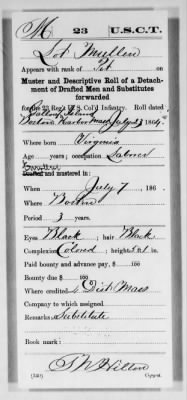 M 23 U.S.C.T.
Lot Mullin
Appears with rank of Pvt on
Muster and Descriptive Roll of a Detach-
ment of Drafted Men and Substitutes
forwarded
for the 23 Reg't U.S. Col'd Infantry. Roll dated
Gallops Island
Boston Harbor Mass July 23 1864
Where born Virginia
Age years; occupation Laborer
Enrolled
Drafted and mustered in:
When July 7 186
Where Boston
Period 3 years.
Eyes Black; hair Black
Complexion Colored; height ft in.
Paid bounty and advance pay, $ 100
Bounty due $ 100
Where credited 4 Dist Mass
Company to which assigned
Remarks: Substitute
Book mark:
Hilton
Copyist.